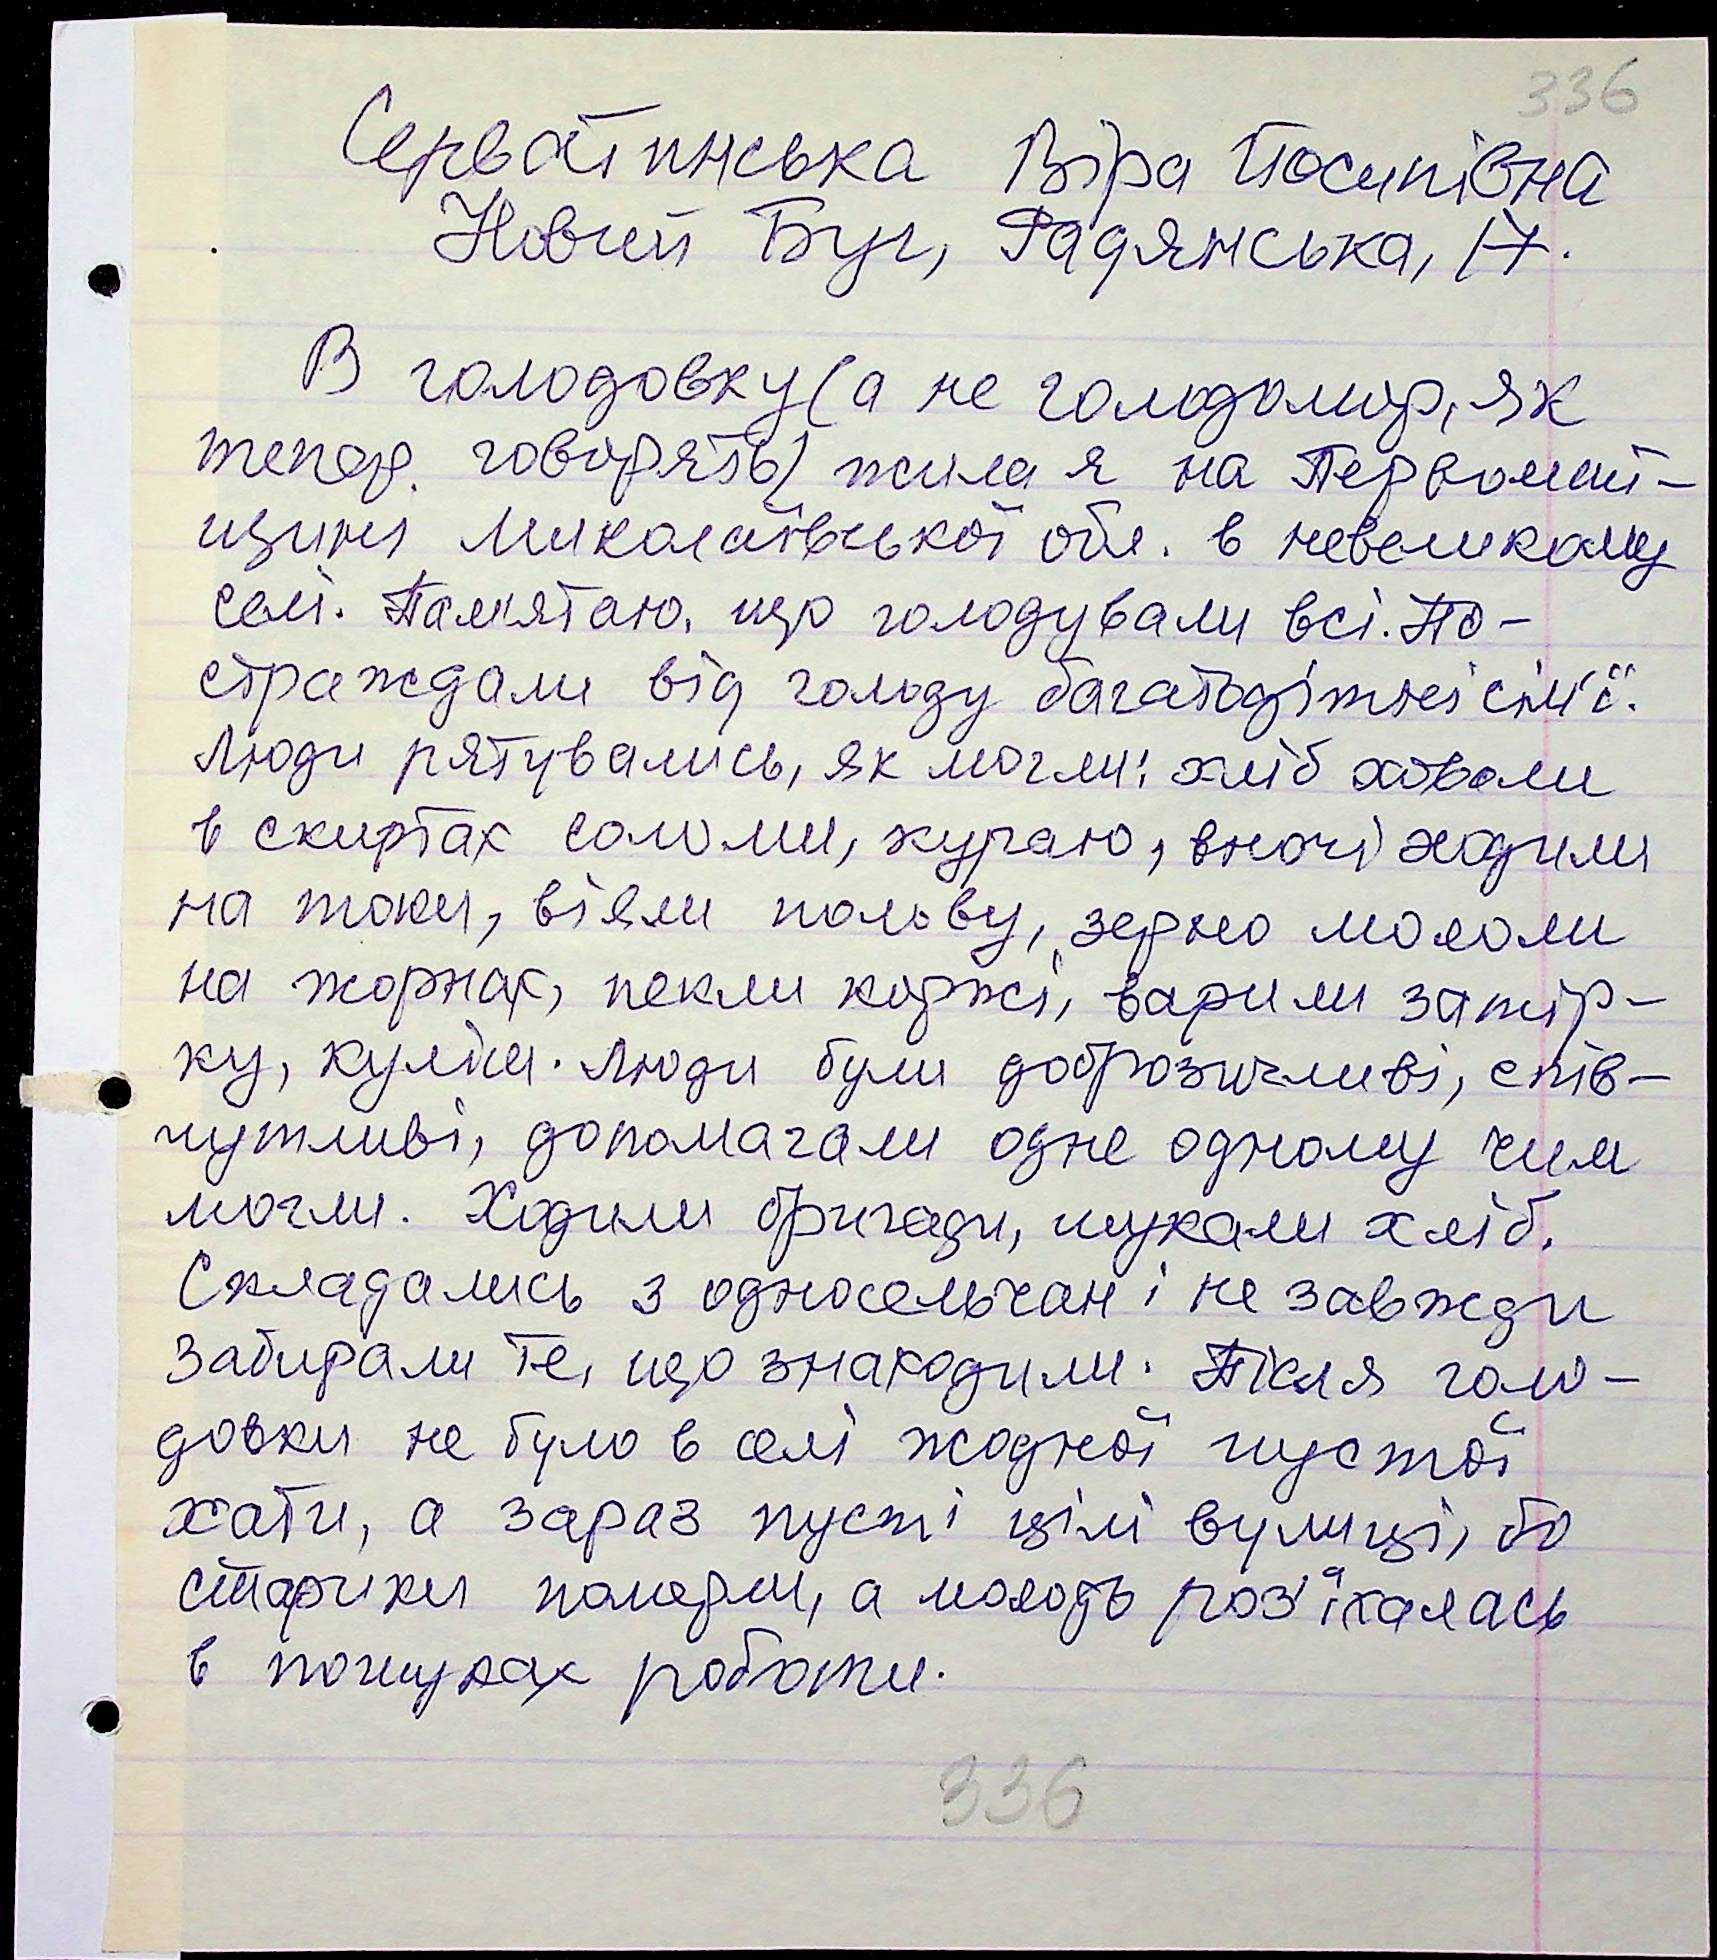 336
Серватинська Віра Йосипівна
Новий Буг, Радянська, 17.
В голодовку (а не голодомор, як
тепер говорять) жила я на Первомай-
щині Миколаївської обл. в невеликому
селі. Пам'ятаю, що голодували всі. По-
страждали від голоду багатодітні сім'ї.
Люди рятувались, як могли: хліб ховали
в скиртах соломи, кураю, вночі ходили
на токи, віяли полову, зерно мололи
на жорнах, пекли коржі, варили затір-
ку, куліш. Люди були доброзичливі, спів-
чутливі, допомагали одне одному чим
могли. Ходили бригади, шукали хліб.
Складались з односельчан і не завжди
забирали те, що знаходили. Після голо-
довки не було в селі жодної пустої
хати, а зараз пусті цілі вулиці, бо
старики померли, а молодь роз'їхалась
в пошуках роботи.
336